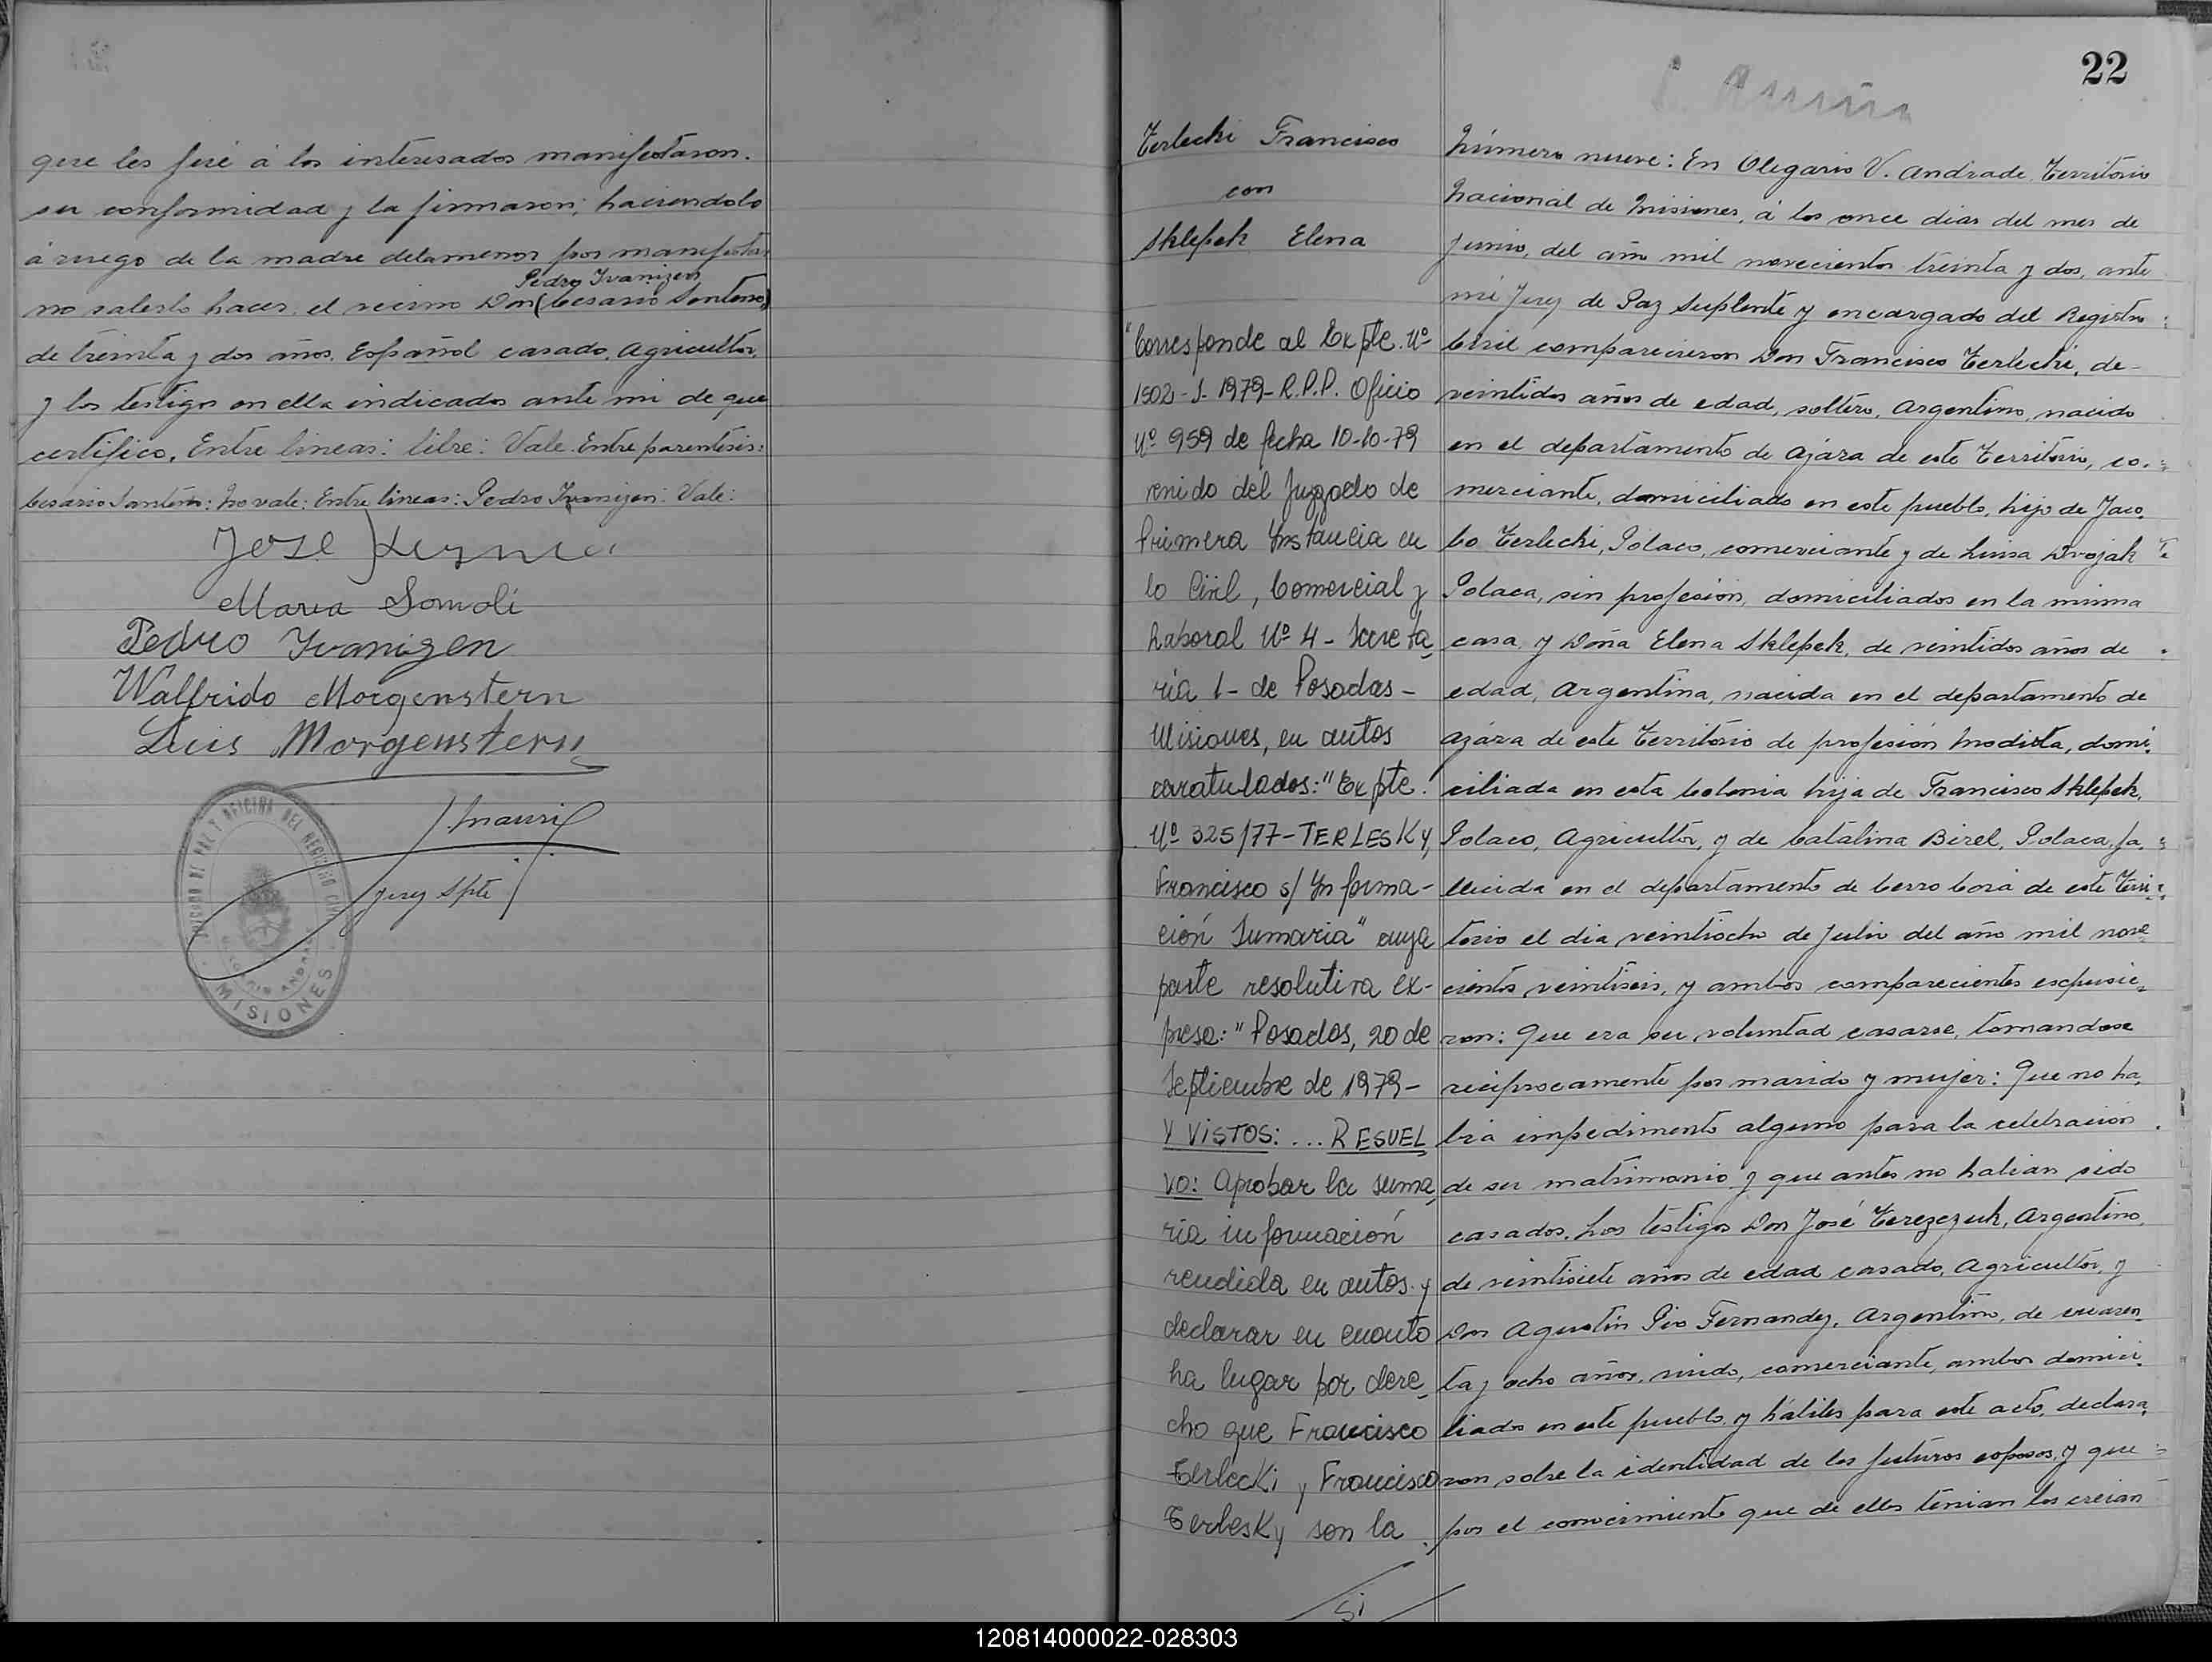 que les fué á los interesados manifestaron.
su conformidad y la firmaron; haciendolo
á ruego de la madre delamenor por manifestar
Pedro Ivanizen
no saberlo hacer, el vecino Don (Cesario Santeno)
de treinta y dos años, Español casado, Agricultor,
y los testigos en ella indicados ante mi de que
certifico, Entre lineas: libre: Vale. Entre parentesis:
Cesario Santeno: No vale: Entre lineas: Pedro Ivanizen: Vale:
José
Maria Somoli
Pedro Ivanizen
Walfrido Morgenstern
Luis Morgenstern
Juez Splte
JUZGADO DE PAZ Y OFICINA DEL REGISTRO CIVIL
MISIONES
22
Terlecki Francisco
con
Sklepek Elena
"Corresponde al Expte. Nº
1502-S-1979-R.P.P. Oficio
Nº 959 de fecha 10-10-79
venido del Juzgado de
Primera Instancia en
lo Civil, Comercial y
Laboral Nº 4 - Secreta
ría 1 - de Posadas -
Misiones, en autos
caratulados: "Expte.
Nº 325/77 - TERLESKY,
Francisco s/ Informa-
ción Sumaria" cuya
parte resolutiva ex-
presa: "Posadas, 20 de
Septiembre de 1979-
Y VISTOS: ... RESUEL
VO: Aprobar la suma
ria información
rendida en autos y
declarar en cuanto
ha lugar por dere
cho que Francisco
Terlecki y Francisco
Terlesky son la
Si
Número nueve: En Olegario V. Andrade, Territorio
Nacional de Misiones, á los once dias del mes de
Junio, del año mil novecientos treinta y dos, ante
mi Juez de Paz Suplente y encargado del Registro
Civil comparecieron Don Francisco Terlecki, de
veintidos años de edad, soltero, Argentino, nacido
en el departamento de Azára de este Territorio, co-
merciante, domiciliado en este pueblo, hijo de Jaco
bo Terlecki, Polaco, comerciante y de Luisa Dvojak
Polaca, sin profesión, domiciliados en la misma
casa y Doña Elena Sklepek, de veintidos años de
edad, Argentina, nacida en el departamento de
Azára de este Territorio de profesión Modista, domi
ciliada en esta Colonia hija de Francisco Sklepek,
Polaco, Agricultor, y de Catalina Birel, Polaca, fa
llecida en el departamento de Cerro Corá de este Terri
torio el dia veintiocho de Julio del año mil nove
cientos veintiseis, y ambos comparecientes expusie
ron: Que era su voluntad casarse, tomandose
reciprocamente por marido y mujer: Que no ha
bia impedimento alguno para la celebración
de su matrimonio y que antes no habian sido
casados. Los testigos Don José Terezczuk, Argentino,
de veintisiete años de edad casado, Agricultor, y
Don Agustin Pio Fernandez, Argentino, de cuaren
ta y ocho años, viudo, comerciante, ambos domici
liados en este pueblo, y hábiles para este acto, declara
ron sobre la identidad de los futuros esposos, y que
por el conocimiento que de ellos tenian los creian
120814000022-028303